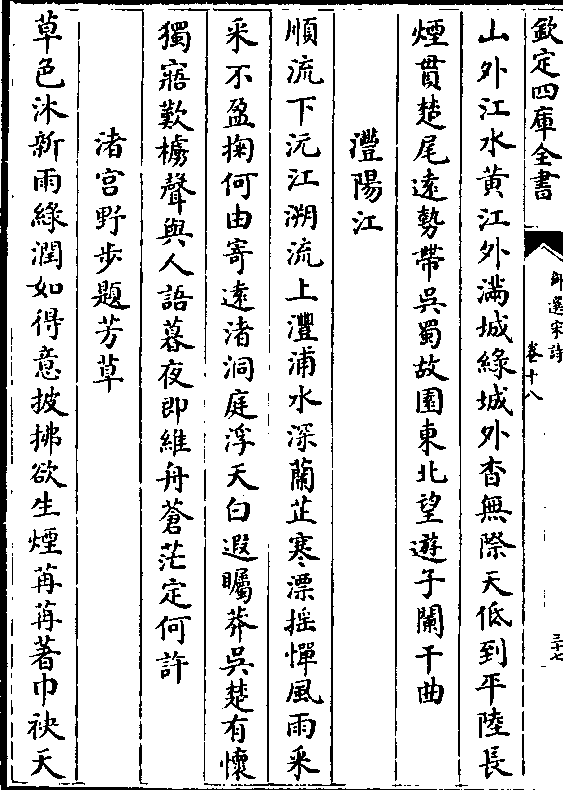 欽定四庫全書
御選宋詩
卷十八
三十七
山外江水黃江外滿城綠城外杳無際天低到平陸長
煙貫楚尾遠勢帶吳蜀故園東北望遊子闌干曲
灃陽江
順流下沅江溯流上灃浦水深蘭芷寒漂摇憚風雨采
采不盈掬何由寄遠渚洞庭浮天白遐矚莽吳楚有懷
獨寤歎櫓聲與人語暮夜即維舟蒼茫定何許
渚宫野步題芳草
草色沐新雨緑潤如得意披拂欲生煙苒苒著巾袂天